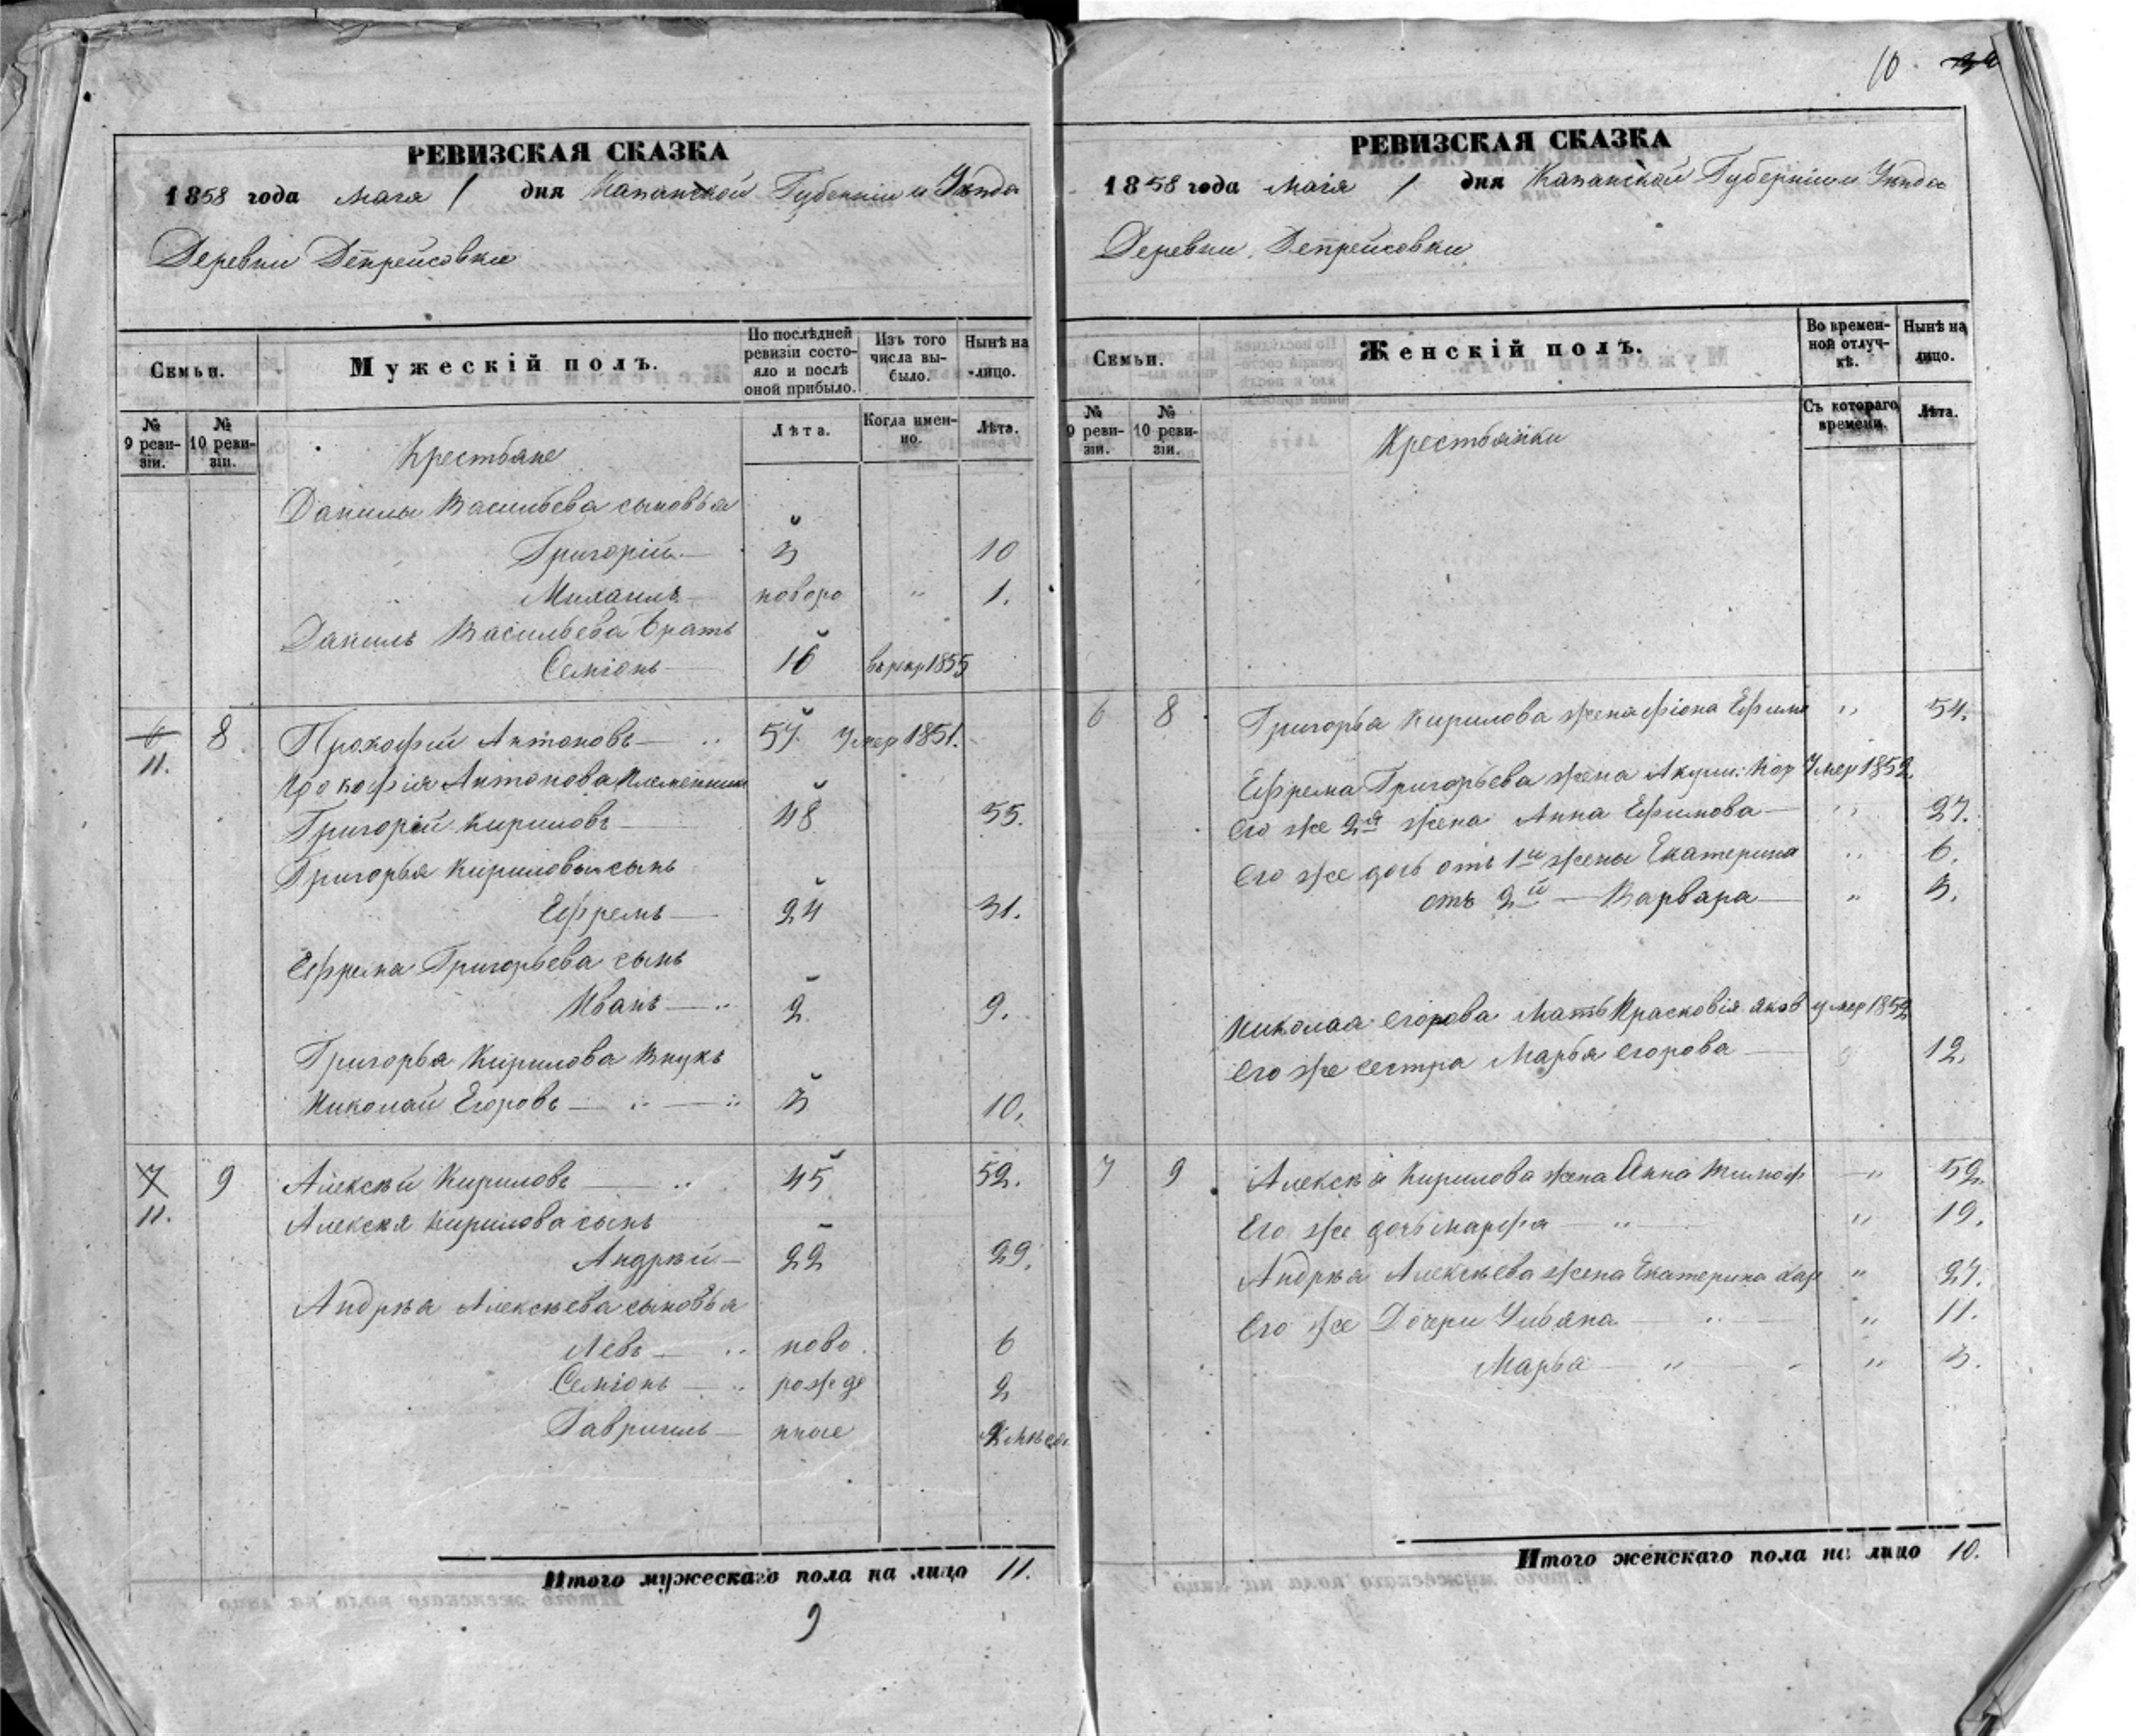 РЕВИЗСКАЯ СКАЗКА
1858 года Мая 1 дня Казанской Губерніи и Уѣзда
Деревни Депрейсовки
Семьи.
Мужескій полъ.
По послѣдней ревизіи состояло и послѣ оной прибыло.
Изъ того числа выбыло.
Нынѣ на лицо.
№ 9 ревизіи.
№ 10 ревизіи.
Лѣта.
Когда именно.
Лѣта.
Крестьяне
Данилы Васильева сыновья
Григорій — 3 10
Михаилъ — новоро " 1.
Данилы Васильева братъ
Семіонъ — 16 въ рекр 1855
6 11. 8 Прокофій Антоновъ — 57. Умер 1851.
Прокофія Антонова племянникъ
Григорій Кириловъ — 48 55.
Григорья Кирилова сынъ
Ефремъ — 24 31.
Ефрема Григорьева сынъ
Иванъ — 2. 9.
Григорья Кирилова внукъ
Николай Егоровъ — 3 10.
7 11. 9 Алексѣй Кириловъ — 45 52.
Алексѣя Кирилова сынъ
Андрѣй — 22 29.
Андрѣя Алексѣева сыновья
Левъ — ново 6
Семіонъ — рожде 2
Гавриилъ — нные
Итого мужескаго пола на лицо 11.
9
10.
РЕВИЗСКАЯ СКАЗКА
1858 года Маія 1 дня Казанской Губерніи и Уѣзда
Деревни Депрейсовки
Семьи.
Женскій полъ.
Во временной отлучкѣ.
Нынѣ на лицо.
№ 9 ревизіи.
№ 10 ревизіи.
Съ котораго времени.
Лѣта.
Крестьянки
6 8 Григорья Кирилова жена Фіона Ефимо " 54.
Ефрема Григорьева жена Акули: Кор Умер 1852.
Его же 2я жена Анна Ефимова — " 27.
Его же дочь отъ 1й жены Екатерина " 6.
отъ 2й — Варвара — " 3.
Николая Егорова мать Прасковія Яков умер 1852
Его же сестра Марья Егорова — 12.
7 9 Алексѣя Кирилова жена Анна Тимоф —" 52.
Его же дочь Марфа — " — " 19.
Андрѣя Алексѣева жена Екатерина Хар " 27.
Его же Дочери Ульяна — " 11.
Марья — " — " 3.
Итого женскаго пола на лицо 10.